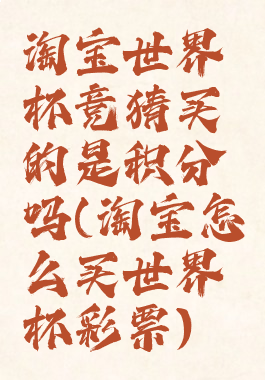 淘宝世界
杯竞猜买
的是积分
吗(淘宝怎
么买世界
杯彩票)